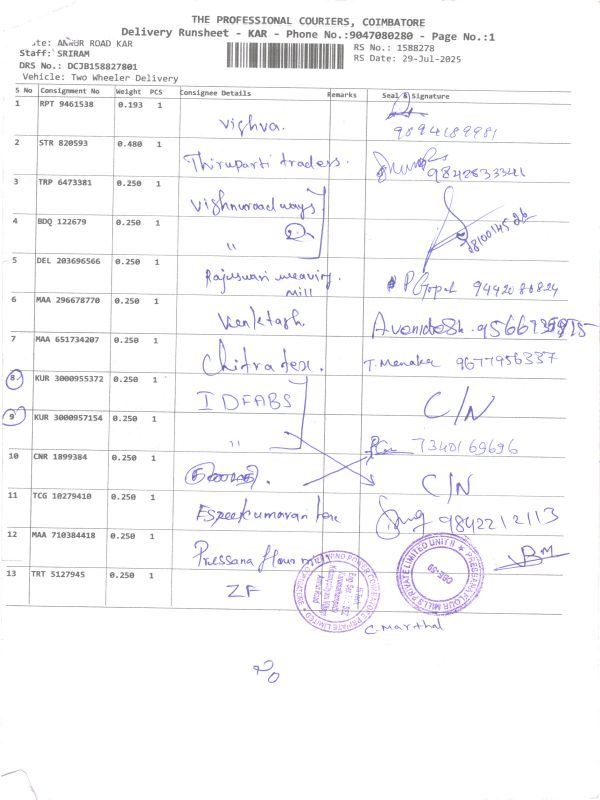 THE PROFESSIONAL COURIERS, COIMBATORE
Delivery Runsheet - KAR - Phone No.:9047080280 - Page No.:1
ROAD KAR
RS No.: 1588278
Staff: SRIRAM
RS Date: 29-Jul-2025
DRS No.: DCJB158827801
Vehicle: Two Wheeler Delivery
S No Consignment No Weight PCS Consignee Details Remarks Seal & Signature
1 RPT 9461538 0.193 1 Vighva. 9894189981
2 STR 820593 0.480 1 Thiruparti traders. 9842833341
3 TRP 6473381 0.250 1 Vishnuroadways
4 BDQ 122679 0.250 1 " 2
5 DEL 203696566 0.250 1 Rajuswari weaving Mill P Gopal 9442080824
6 MAA 296678770 0.250 1 Venktash
7 MAA 651734207 0.250 1 Chitra tex. T. Menaka 9677956337
8 KUR 3000955372 0.250 1 IDFABS C/N
9 KUR 3000957154 0.250 1 " 7340169696
10 CNR 1899384 0.250 1 C/N
11 TCG 10279410 0.250 1 9842212113
12 MAA 710384418 0.250 1 Pressana flour mill
PRESSANA FLOUR MILLS PRIVATE LIMITED UNIT II
CBE-59
13 TRT 5127945 0.250 1 ZF
C. Marthal